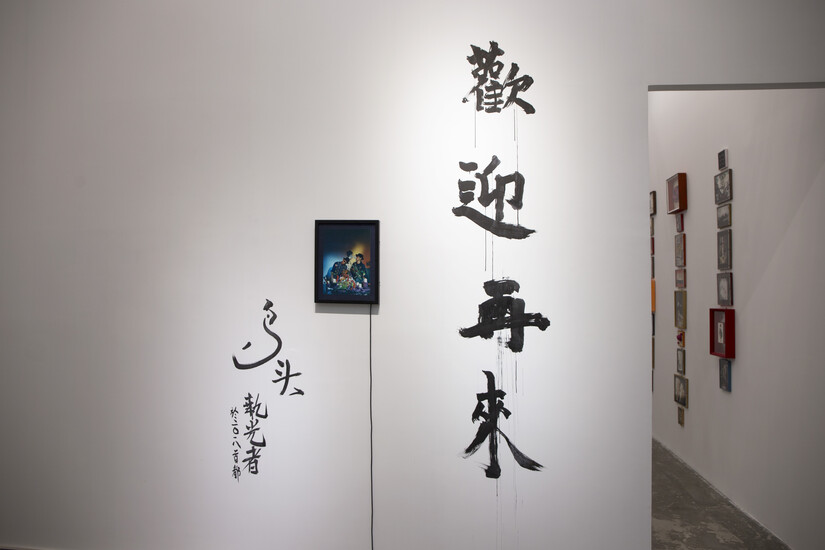 歡迎再來
鸟头
執光者
於二〇一八都